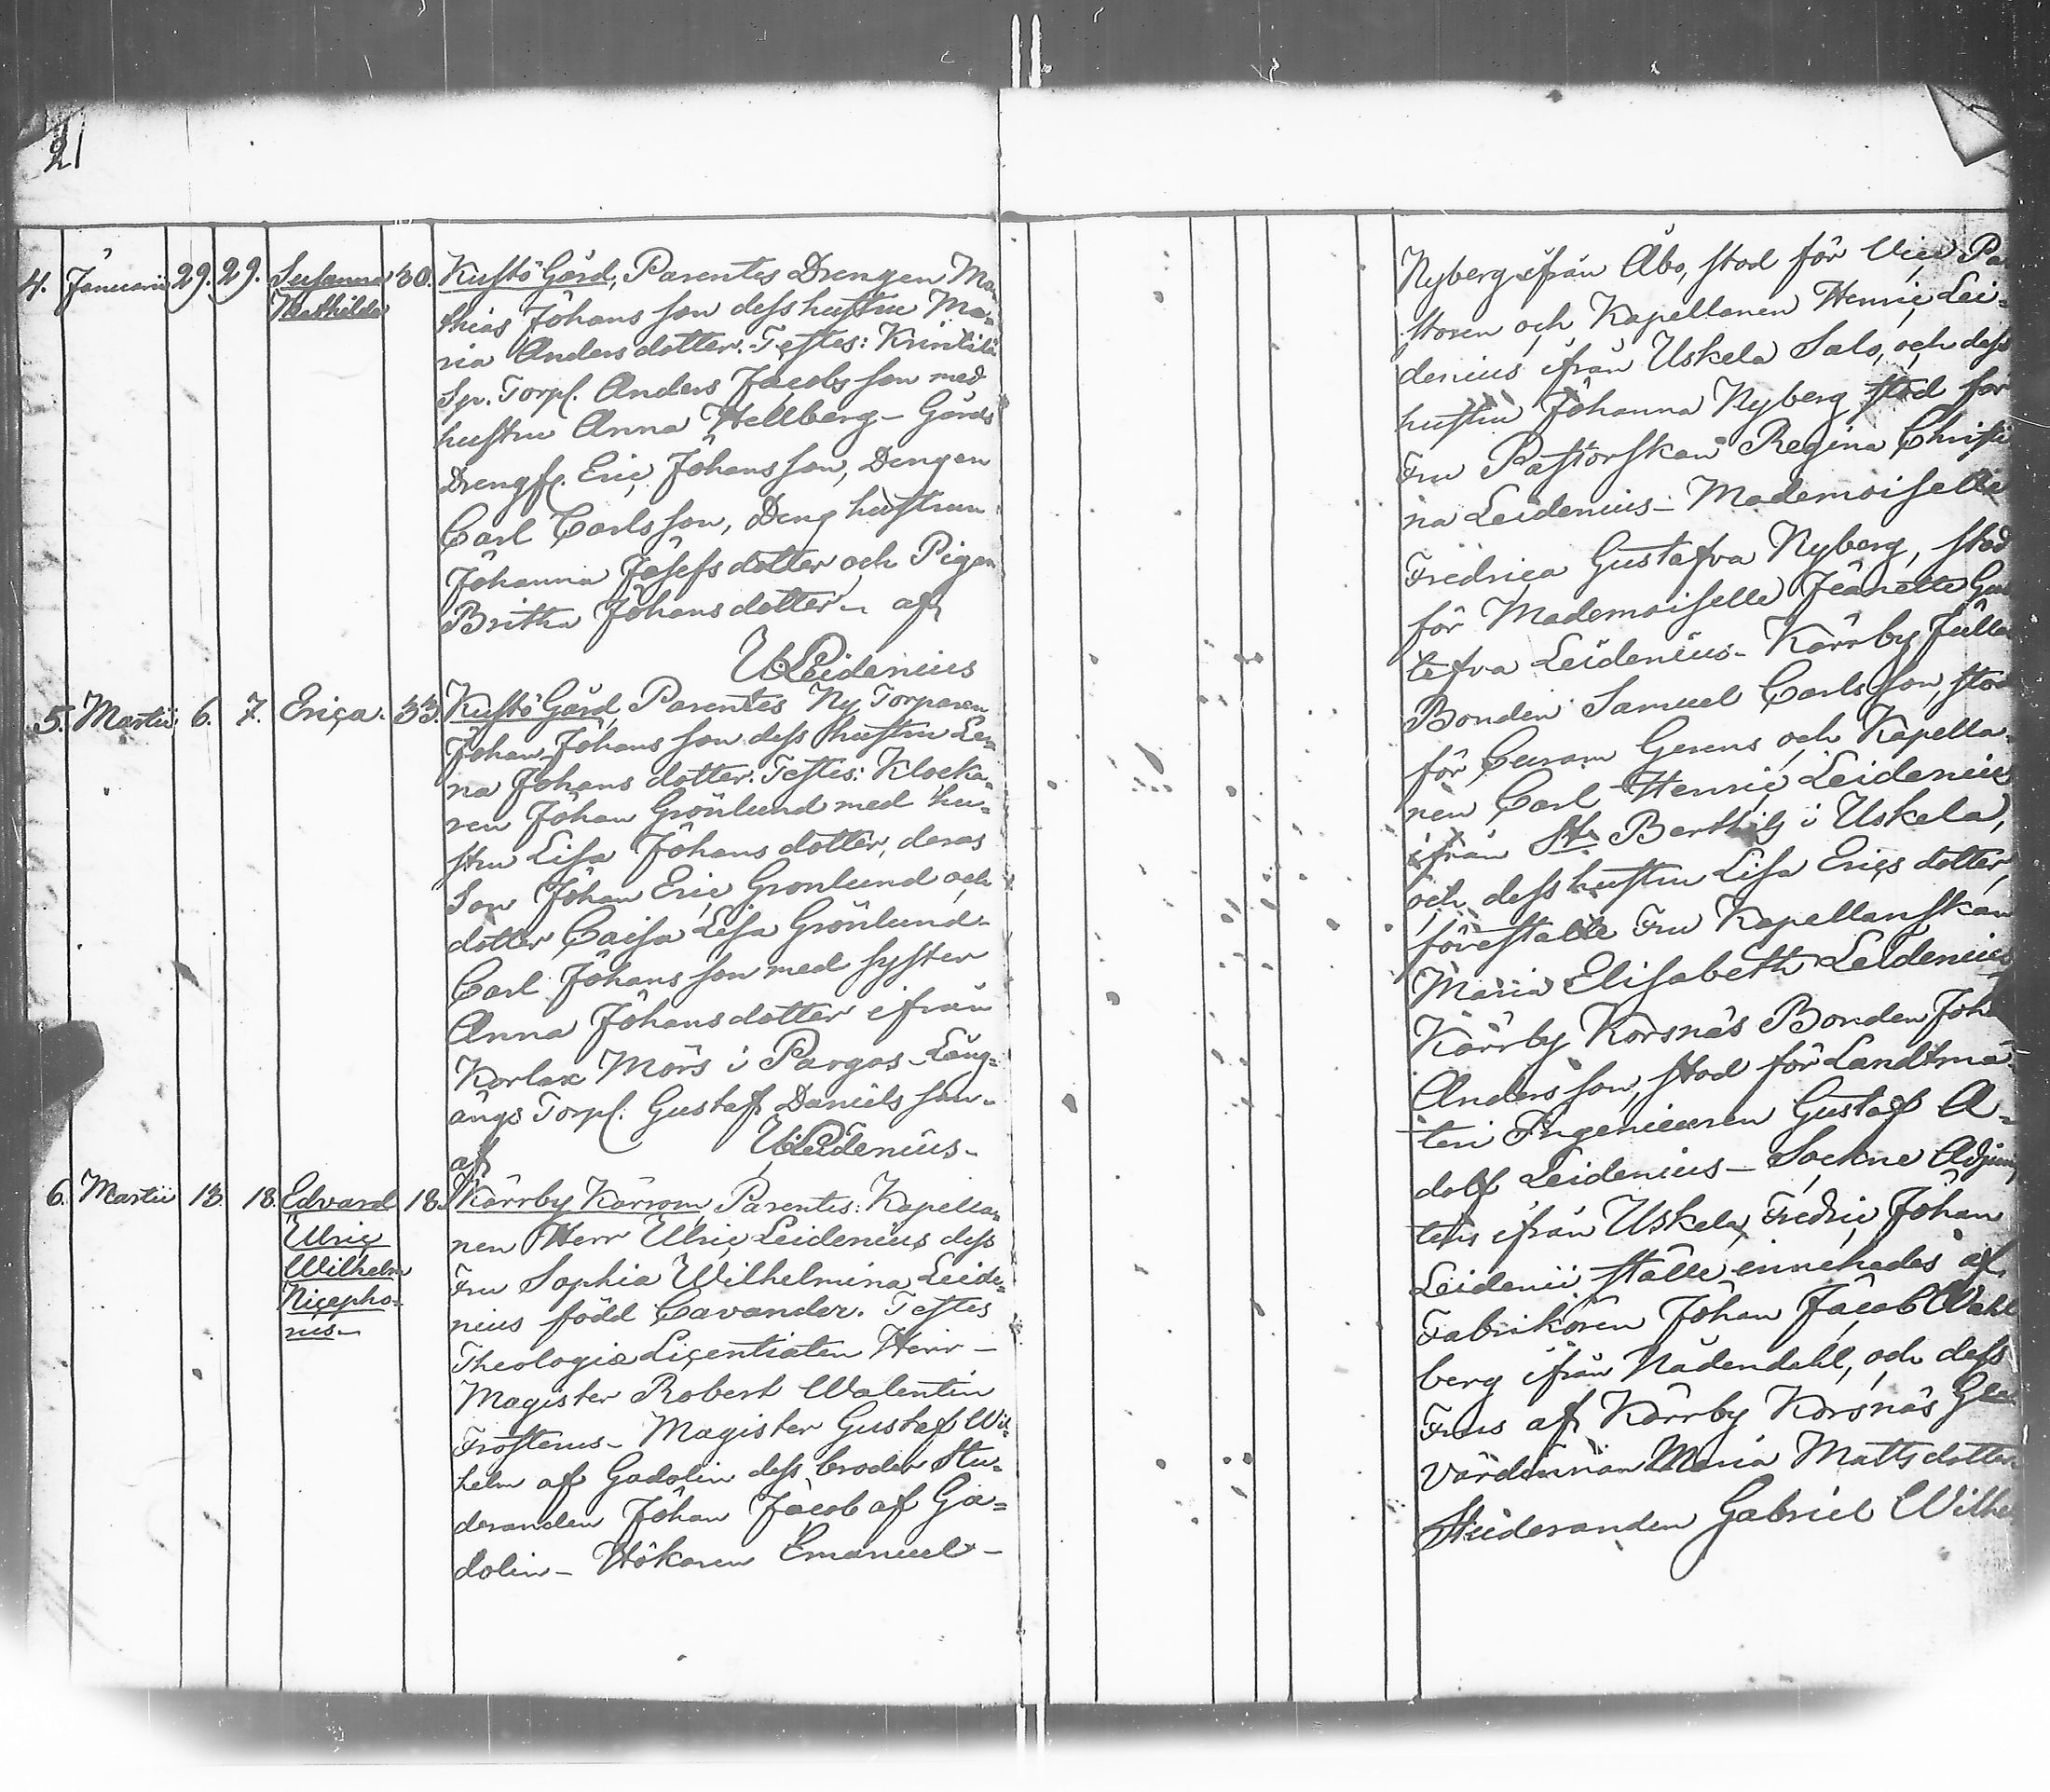 21
4. Januarii 29. 29. Susanna 30. Kustö Gård, Parentes Drengen Ma
Mathilda
thias Johans son dess hustru Ma-
ria Anders dotter. Testes: Krintilä
Sp. Torpf. Anders Jacobs son med
hustru Anna Hellberg - Gårds
Drengf. Eric Johansson, Drengen
Carl Carlsson, Dreng hustrun
Johanna Josefs dotter och Pigan
Britha Johans dotter - af
U Leidenius
5. Martii 6. 7. Erica. 33. Kustö Gård, Parentes Ny Torparen
Johan Johans son dess hustru Le-
na Johans dotter. Testes: Klocka-
ren Johan Grönlund med hu-
stru Lisa Johans dotter, deras
Son Johan Eric Gronlund och
dotter Caisa Lisa Grönlund -
Carl Johans son med syster
Anna Johans dotter ifrån
Korlax Mörs i Pargas - Läng-
ängs Torpf. Gustaf Daniels son -
af U Leidenius -
6. Martii 13. 18. Edvard 18. Kärrby Kärrom, Parentes: Kapella
Ulric
Wilhelm
Nicepho-
rus -
nen Herr Ulric Leidenius dess
Fru Sophia Wilhelmina Leide-
nius född Cavander. Testes
Theologiæ Licentiaten Herr -
Magister Robert Walentin
Frosterus - Magister Gustaf Wil-
helm af Gadolin dess broder Stu-
deranden Johan Jacob af Ga-
dolin - Hökaren Emanuel -
Nyberg ifrån Åbo, stod för Vice Pa
storen och Kapellanen Henric Lei-
denius ifrån Uskela Salo, och dess
hustru Johanna Nyberg stod for
Fru Pastorskan Regina Christi
na Leidenius - Mademoiselle
Fredrica Gustafva Nyberg, stod
för Mademoiselle Jeanette Gus
tafva Leidenius - Kärrby Julla
Bonden Samuel Carlsson, stod
för Curam Gerens och Kapella-
nen Carl Henric Leidenius
ifrån St. Bertils i Uskela,
och dess hustru Lisa Erics dotter,
förestälte Fru Kapellanskan
Maria Elisabeth Leidenius
Kärrby Korsnäs Bonden Joh
Anders son, stod för Landtmä-
teri Ingenieuren Gustaf A-
dolf Leidenius - Sockne Adjunc
tens ifrån Uskela, Fredric Johan
Leidenii ställe innehades af
Fabrikören Johan Jacob Wahl
berg ifrån Nådendahl, och dess
Frus af Kärrby Korsnäs
Värdinnan Maria Matts dotter
Studeranden Gabriel Wilhe